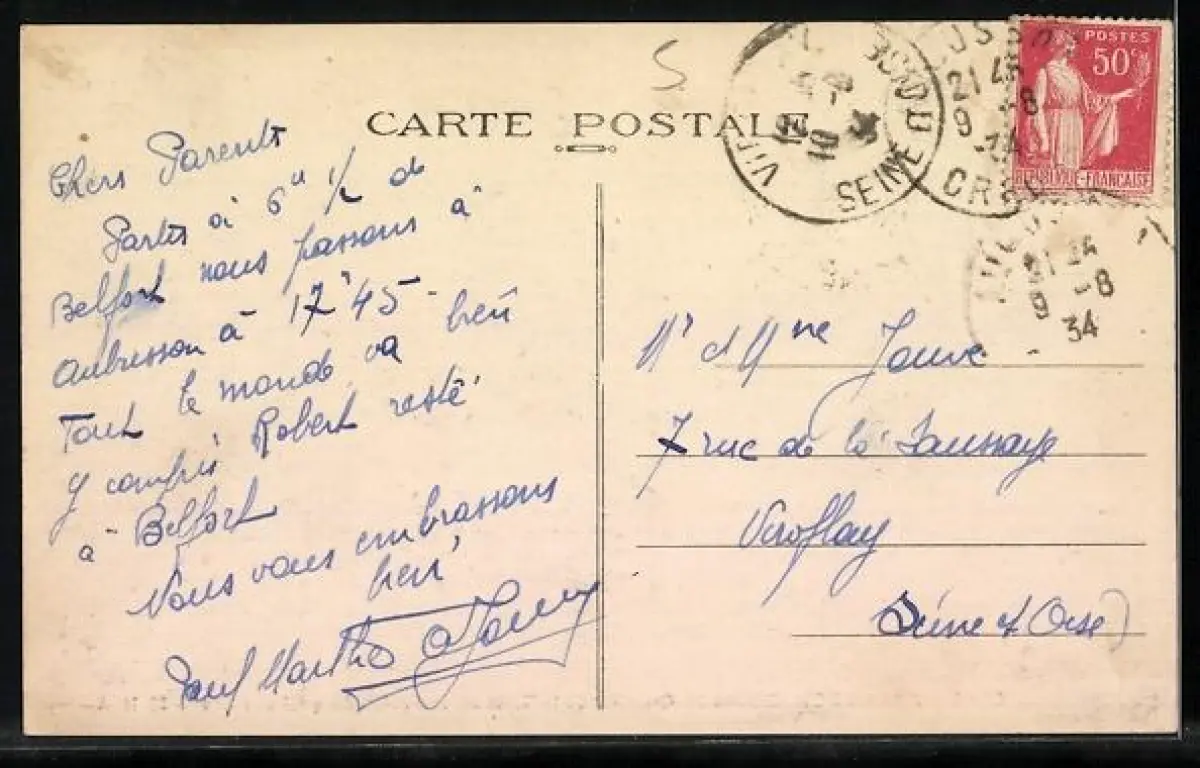 CARTE POSTALE
S
Chers Parents
Partis à 6ʰ 1/2 de
Belfort nous passons à
Aubusson à 17ʰ45 -
Tout le monde va bien
y compris Robert resté
à Belfort
Nous vous embrassons
bien
Paul Marthe
POSTES
50c
REPUBLIQUE-FRANÇAISE
SEINE
21 45
9 -8
34
CRE
21 45
9 -8
34
Mr et Mme Jouve
7 rue de la Saussaye
Viroflay
Seine et Oise)